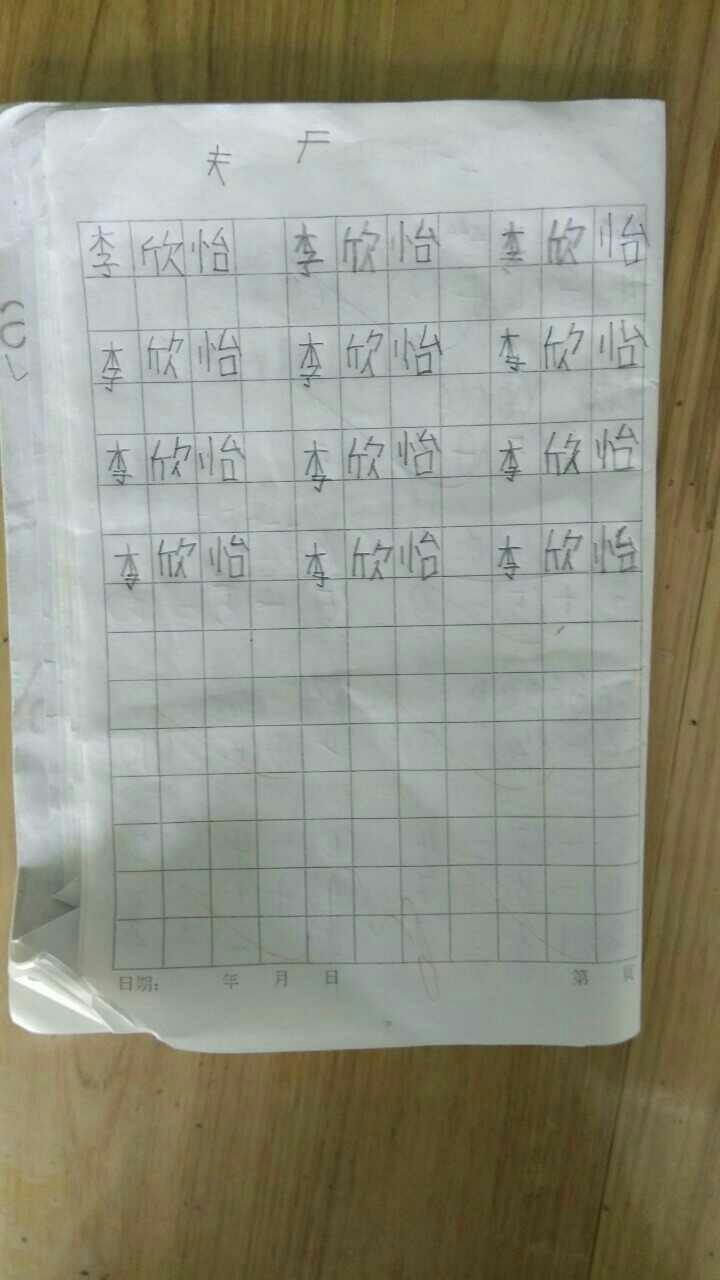 李欣怡 李欣怡 李欣怡
李欣怡 李欣怡 李欣怡
李欣怡 李欣怡 李欣怡
李欣怡 李欣怡 李欣怡
日期： 年 月 日 第 页